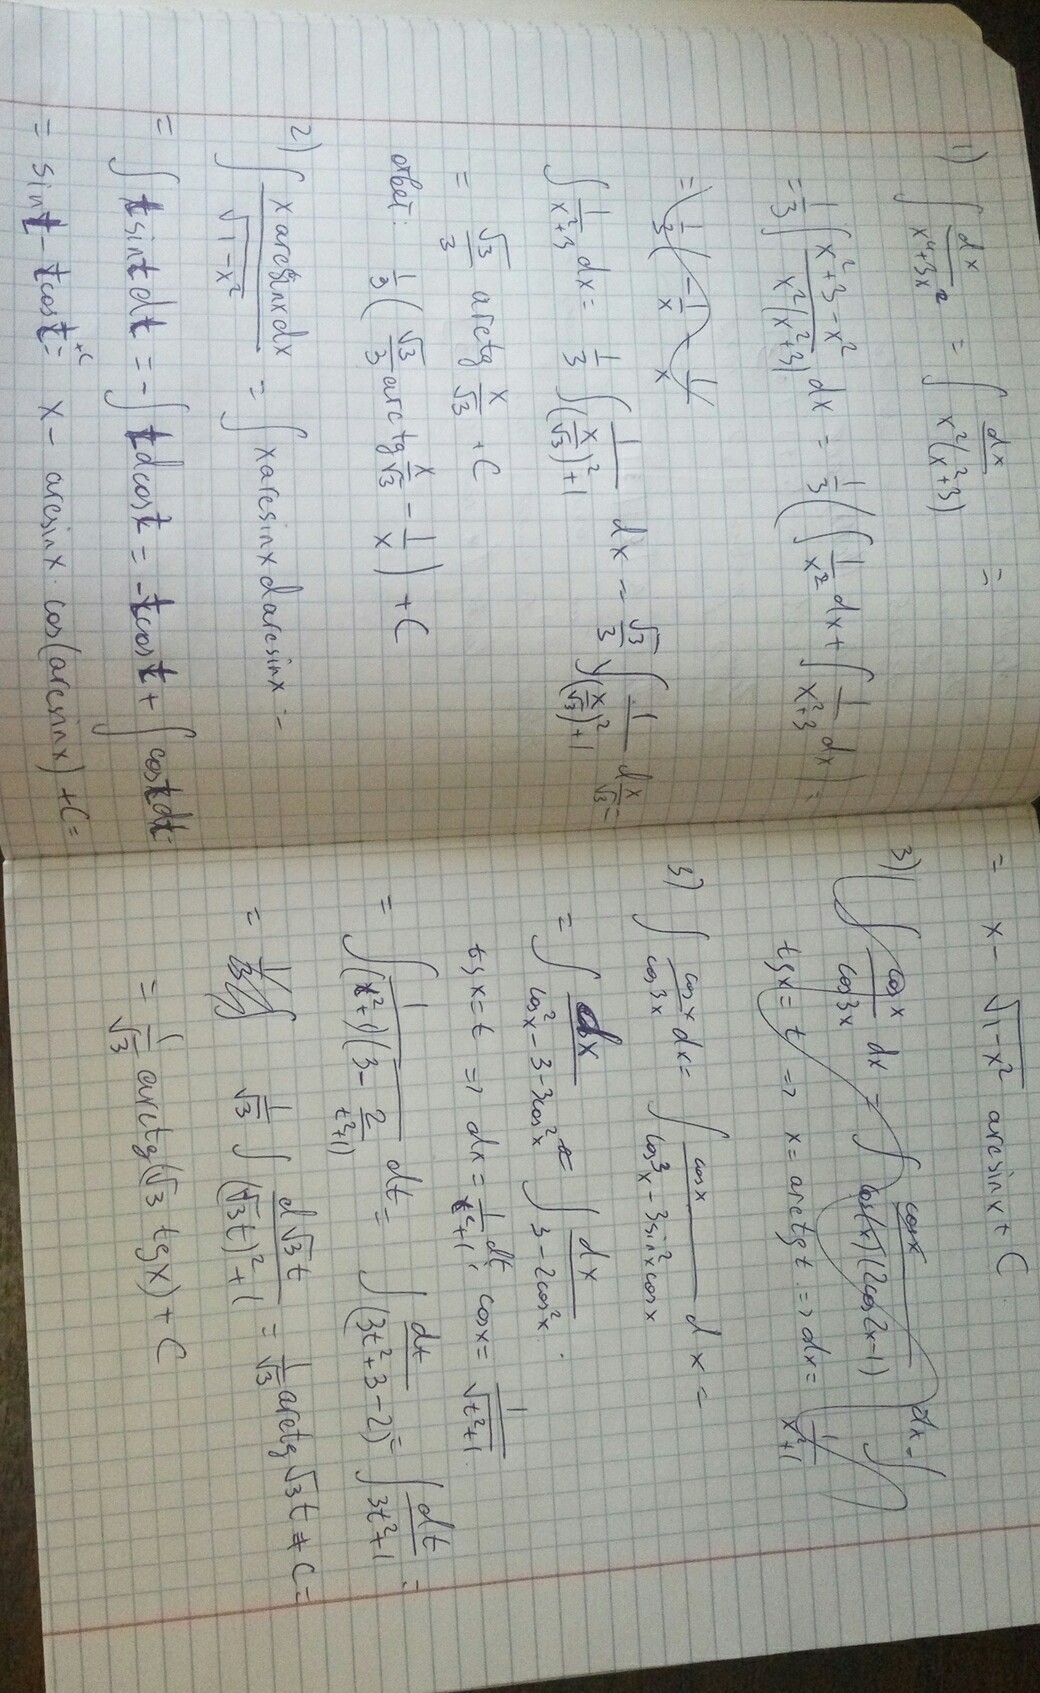 1) ∫ dx/(x⁴+3x²) = ∫ dx/(x²(x²+3)) =
= 1/3 ∫ (x²+3-x²)/(x²(x²+3)) dx = 1/3 (∫ 1/x² dx + ∫ 1/(x²+3) dx) =
= 1/3 (-1/x - 1/x
∫ 1/(x²+3) dx = 1/3 ∫ 1/((x/√3)²+1) dx = √3/3 ∫ 1/((x/√3)²+1) d x/√3 =
= √3/3 arctg x/√3 + C
ответ: 1/3 (√3/3 arctg x/√3 - 1/x) + C
2) ∫ x arcsinx dx/√(1-x²) = ∫ x arcsinx d arcsinx =
= ∫ t sint dt = -∫ t dcost = -t cost + ∫ cost dt =
= sint - t cost +C = x - arcsinx · cos(arcsinx) + C =
= x - √(1-x²) arcsinx + C
3) ∫ cosx/cos3x dx = ∫ cosx/(cos(x)(2cos2x-1)) dx = ∫
tgx = t => x = arctgt => dx = 1/(x²+1)
3) ∫ cosx/cos3x dx = ∫ cosx/(cos³x - 3sin²x cosx) dx =
= ∫ dx/(cos²x - 3 - 3cos²x) ∫ dx/(3 - 2cos²x) .
tgx = t => dx = 1/(t²+1) dt, cosx = 1/√(t²+1)
= ∫ 1/((t²+1)(3 - 2/(t²+1))) dt = ∫ dt/(3t²+3-2) = ∫ dt/(3t²+1) =
= 1/√3 ∫ d√3t/((√3t)²+1) = 1/√3 arctg √3t + C =
= 1/√3 arctg(√3 tgx) + C